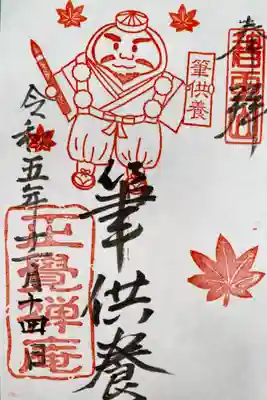 奉拝
筆供養
筆供養
令和五年十一月十四日
正覺禅庵